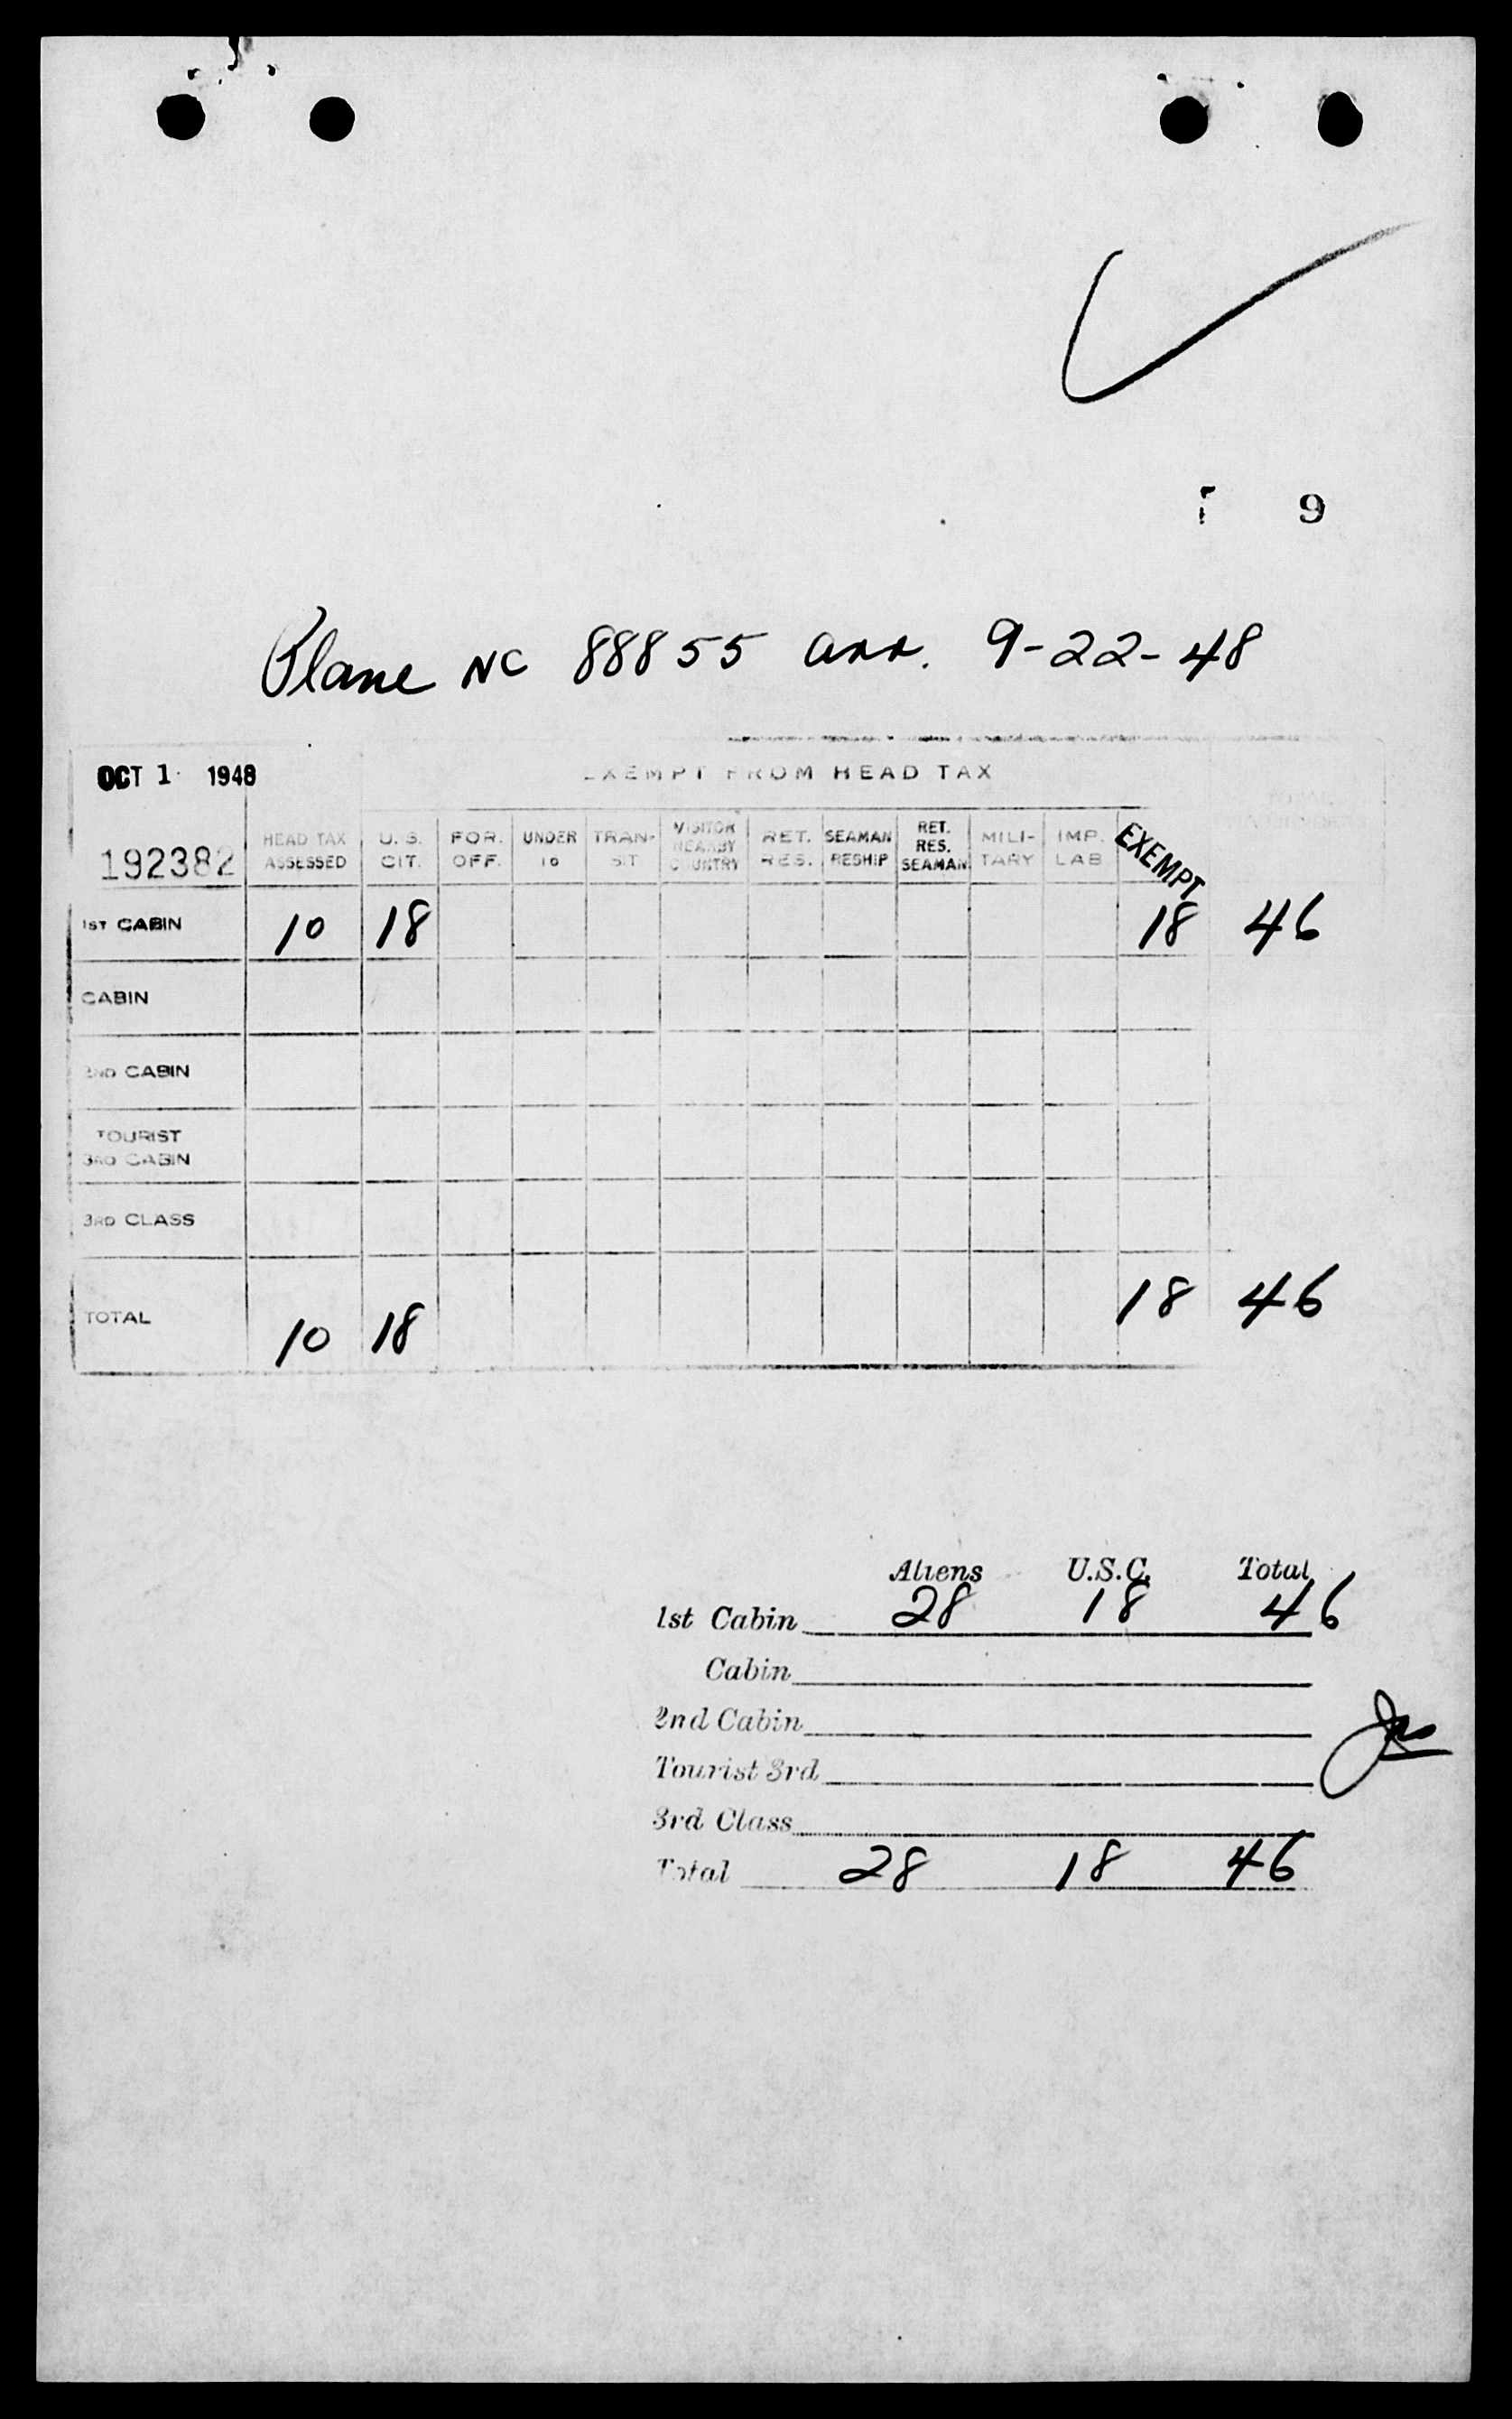 9
Plane NC 88855 arr. 9-22-48
OCT 1 1948
EXEMPT FROM HEAD TAX
192382
HEAD TAX ASSESSED U. S. CIT. FOR. OFF. UNDER 16 TRAN-SIT VISITOR NEARBY COUNTRY RET. RES. SEAMAN RESHIP RET. RES. SEAMAN MILI-TARY IMP. LAB EXEMPT
1ST CABIN 10 18 18 46
CABIN
2ND CABIN
TOURIST
3RD CABIN
3RD CLASS
TOTAL 10 18 18 46
Aliens U.S.C. Total
1st Cabin 28 18 46
Cabin
2nd Cabin
Tourist 3rd
3rd Class
Total 28 18 46